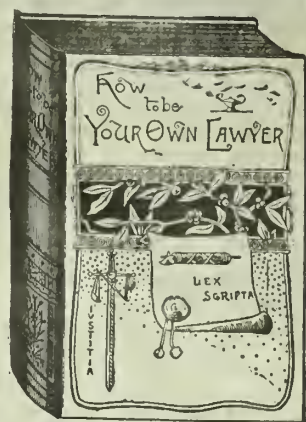 How
to be
YOUR OWN LAWYER
LEX
SCRIPTA
IUSTITIA